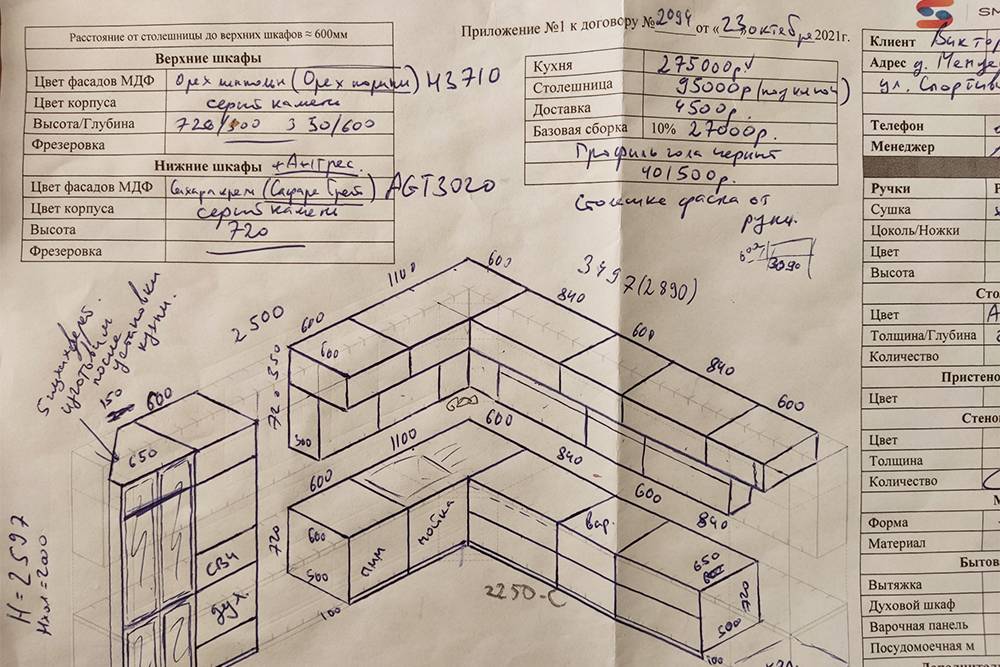 Расстояние от столешницы до верхних шкафов ≈ 600мм
Верхние шкафы
Цвет фасадов МДФ Орех (Орех H3710
Цвет корпуса серый камень
Высота/Глубина 720/300 350/600
Фрезеровка
Нижние шкафы + Антрес.
Цвет фасадов МДФ Сахара крем (Сафари Грей) AGT3020
Цвет корпуса серый камень
Высота 720
Фрезеровка
Приложение №1 к договору № 2094 от «23» октября 2021г.
Кухня 275000р.
Столешница 95000р (под ключ)
Доставка 4500р.
Базовая сборка 10% 27000р.
Профиль гола черный
401500р.
фаска от
руки.
3090
SM
Клиент Виктор
Адрес д. Менде
ул. Спортив
Телефон
Менеджер
Ручки
Сушка
Цоколь/Ножки
Цвет
Высота
Сто
Цвет А
Толщина/Глубина
Количество
Пристено
Цвет
Стенов
Цвет
Толщина
Количество
М
Форма
Материал
Бытов
Вытяжка
Духовой шкаф
Варочная панель
Посудомоечная м
Дополнитель
после
установки
кухни.
150
600
650
СВЧ
дух.
H=2597
2500
600
1100
600
3497(2890)
840
600
840
600
600
350
720
300
600
600
1100
600
840
600
840
720
600
500
100
ПММ
мойка
вар.
650
720
500
100
2250-С